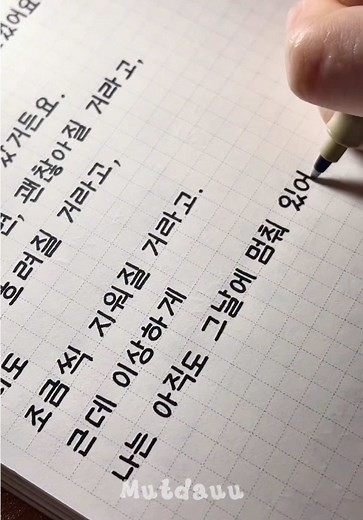 있어요
거든요.
면, 괜찮아질 거라고,
흐려질 거라고,
조금씩 지워질 거라고.
근데 이상하게
나는 아직도 그날에 멈춰 있어
Mutdauu